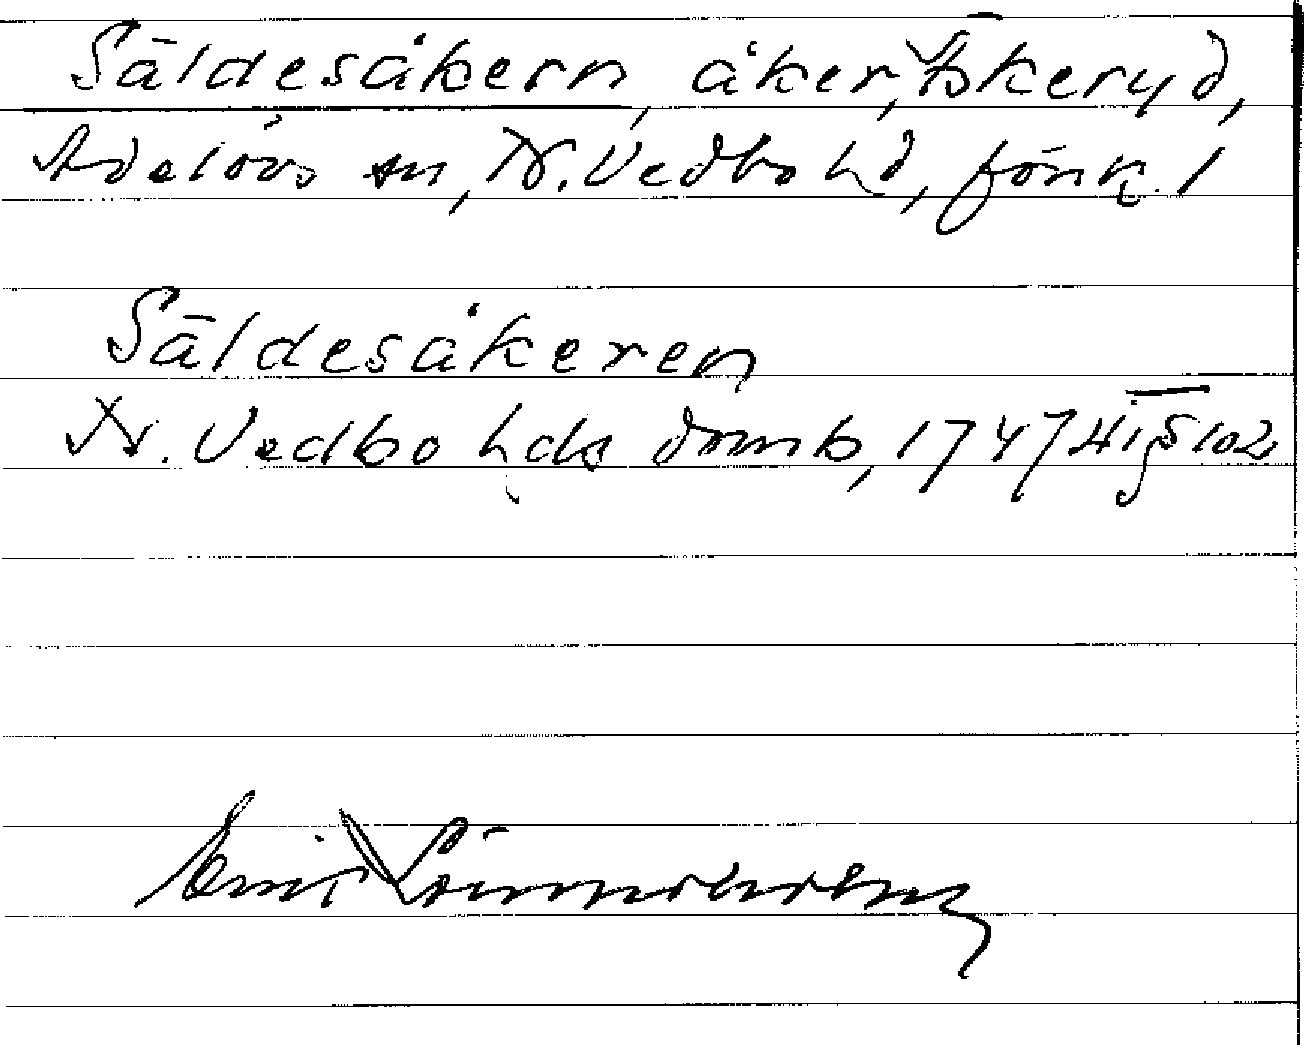 Säldesåkern, åker, Äskeryd,
Adelövs sn, N. Vedbo hd, Jönk. l
Säldesåkeren
N. Vedbo hds domb, 1747 4/5 § 102